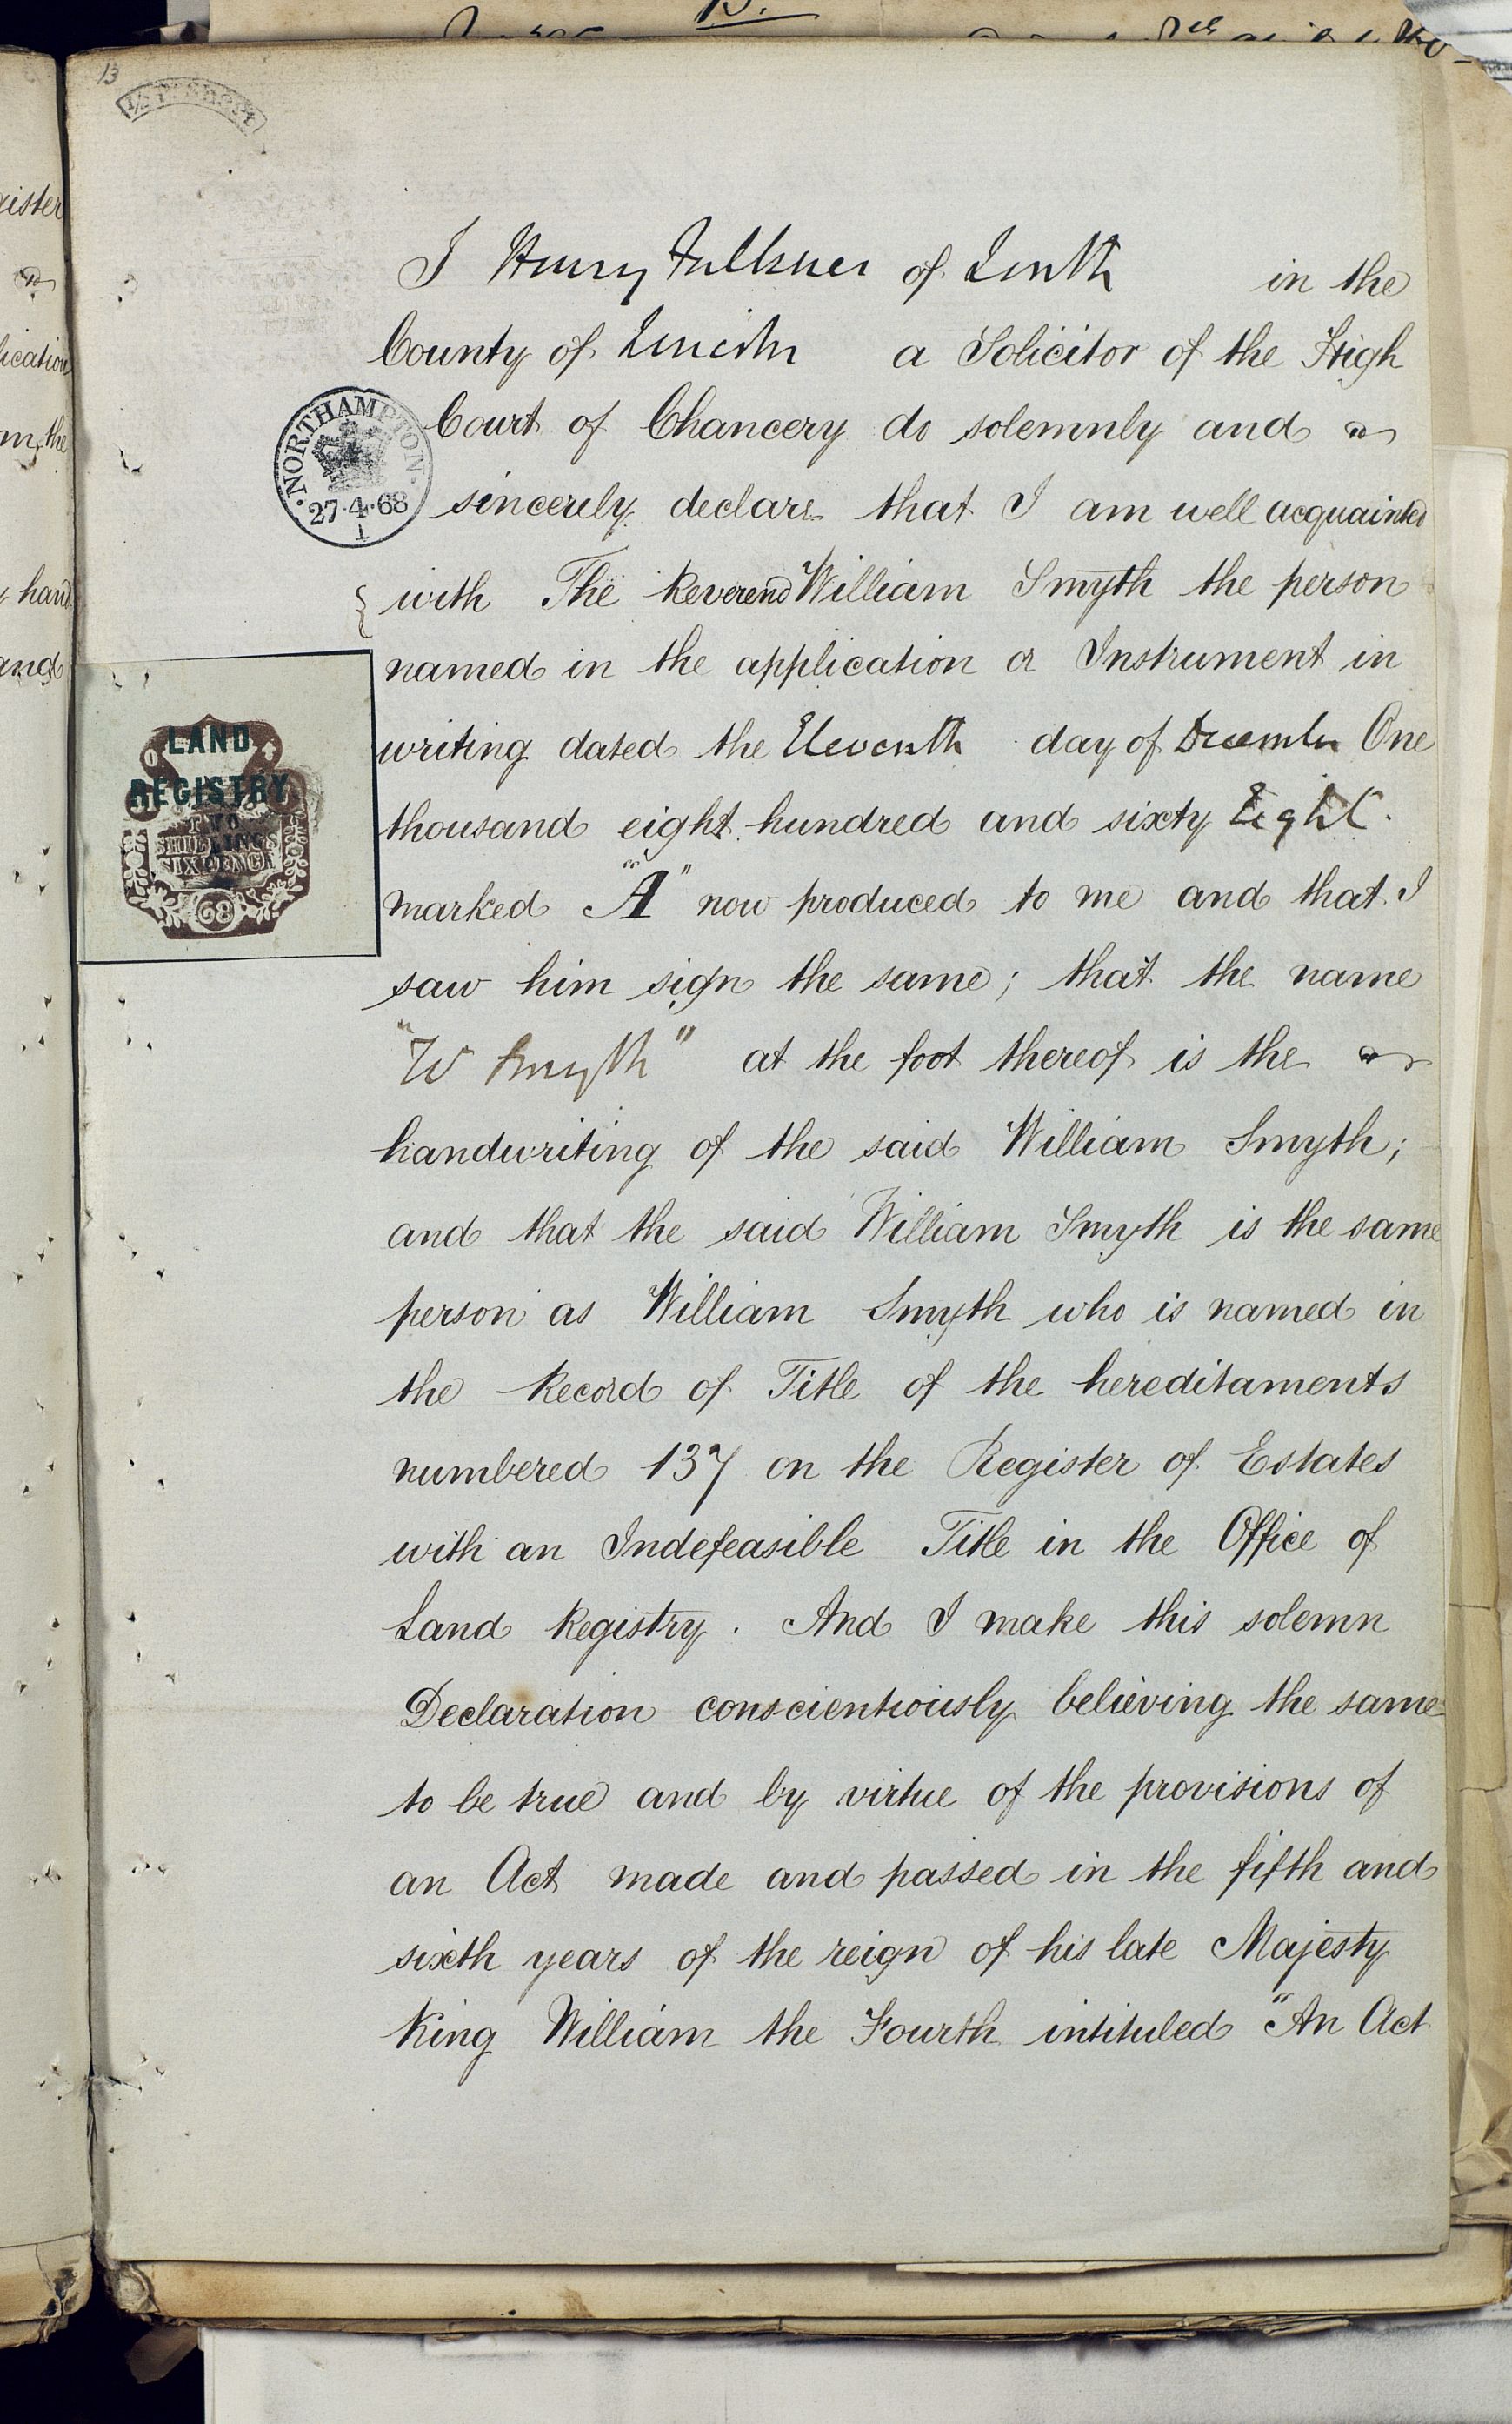 13
I Henry Falkner of Louth in the
County of Lincoln a Solicitor of the High
Court of Chancery do solemnly and
sincerely declare that I am well acquainted
with The Reverend William Smyth the person
named in the application or Instrument in
writing dated the Eleventh day of December One
thousand eight hundred and sixty Eight
marked "A" now produced to me and that I
saw him sign the same; that the name
"W Smyth" at the foot thereof is the
handwriting of the said William Smyth;
and that the said William Smyth is the same
person as William Smyth who is named in
the Record of Title of the hereditaments
numbered 137 on the Register of Estates
with an Indefeasible Title in the Office of
Land Registry. And I make this solemn
Declaration conscientiously believing the same
to be true and by virtue of the provisions of
an Act made and passed in the fifth and
sixth years of the reign of his late Majesty
King William the Fourth intituled "An Act
NORTHAMPTON
27·4·68
1
LAND
REGISTRY
TWO
SHILLINGS
SIXPENCE
68
gister
lication
m the
hand
and